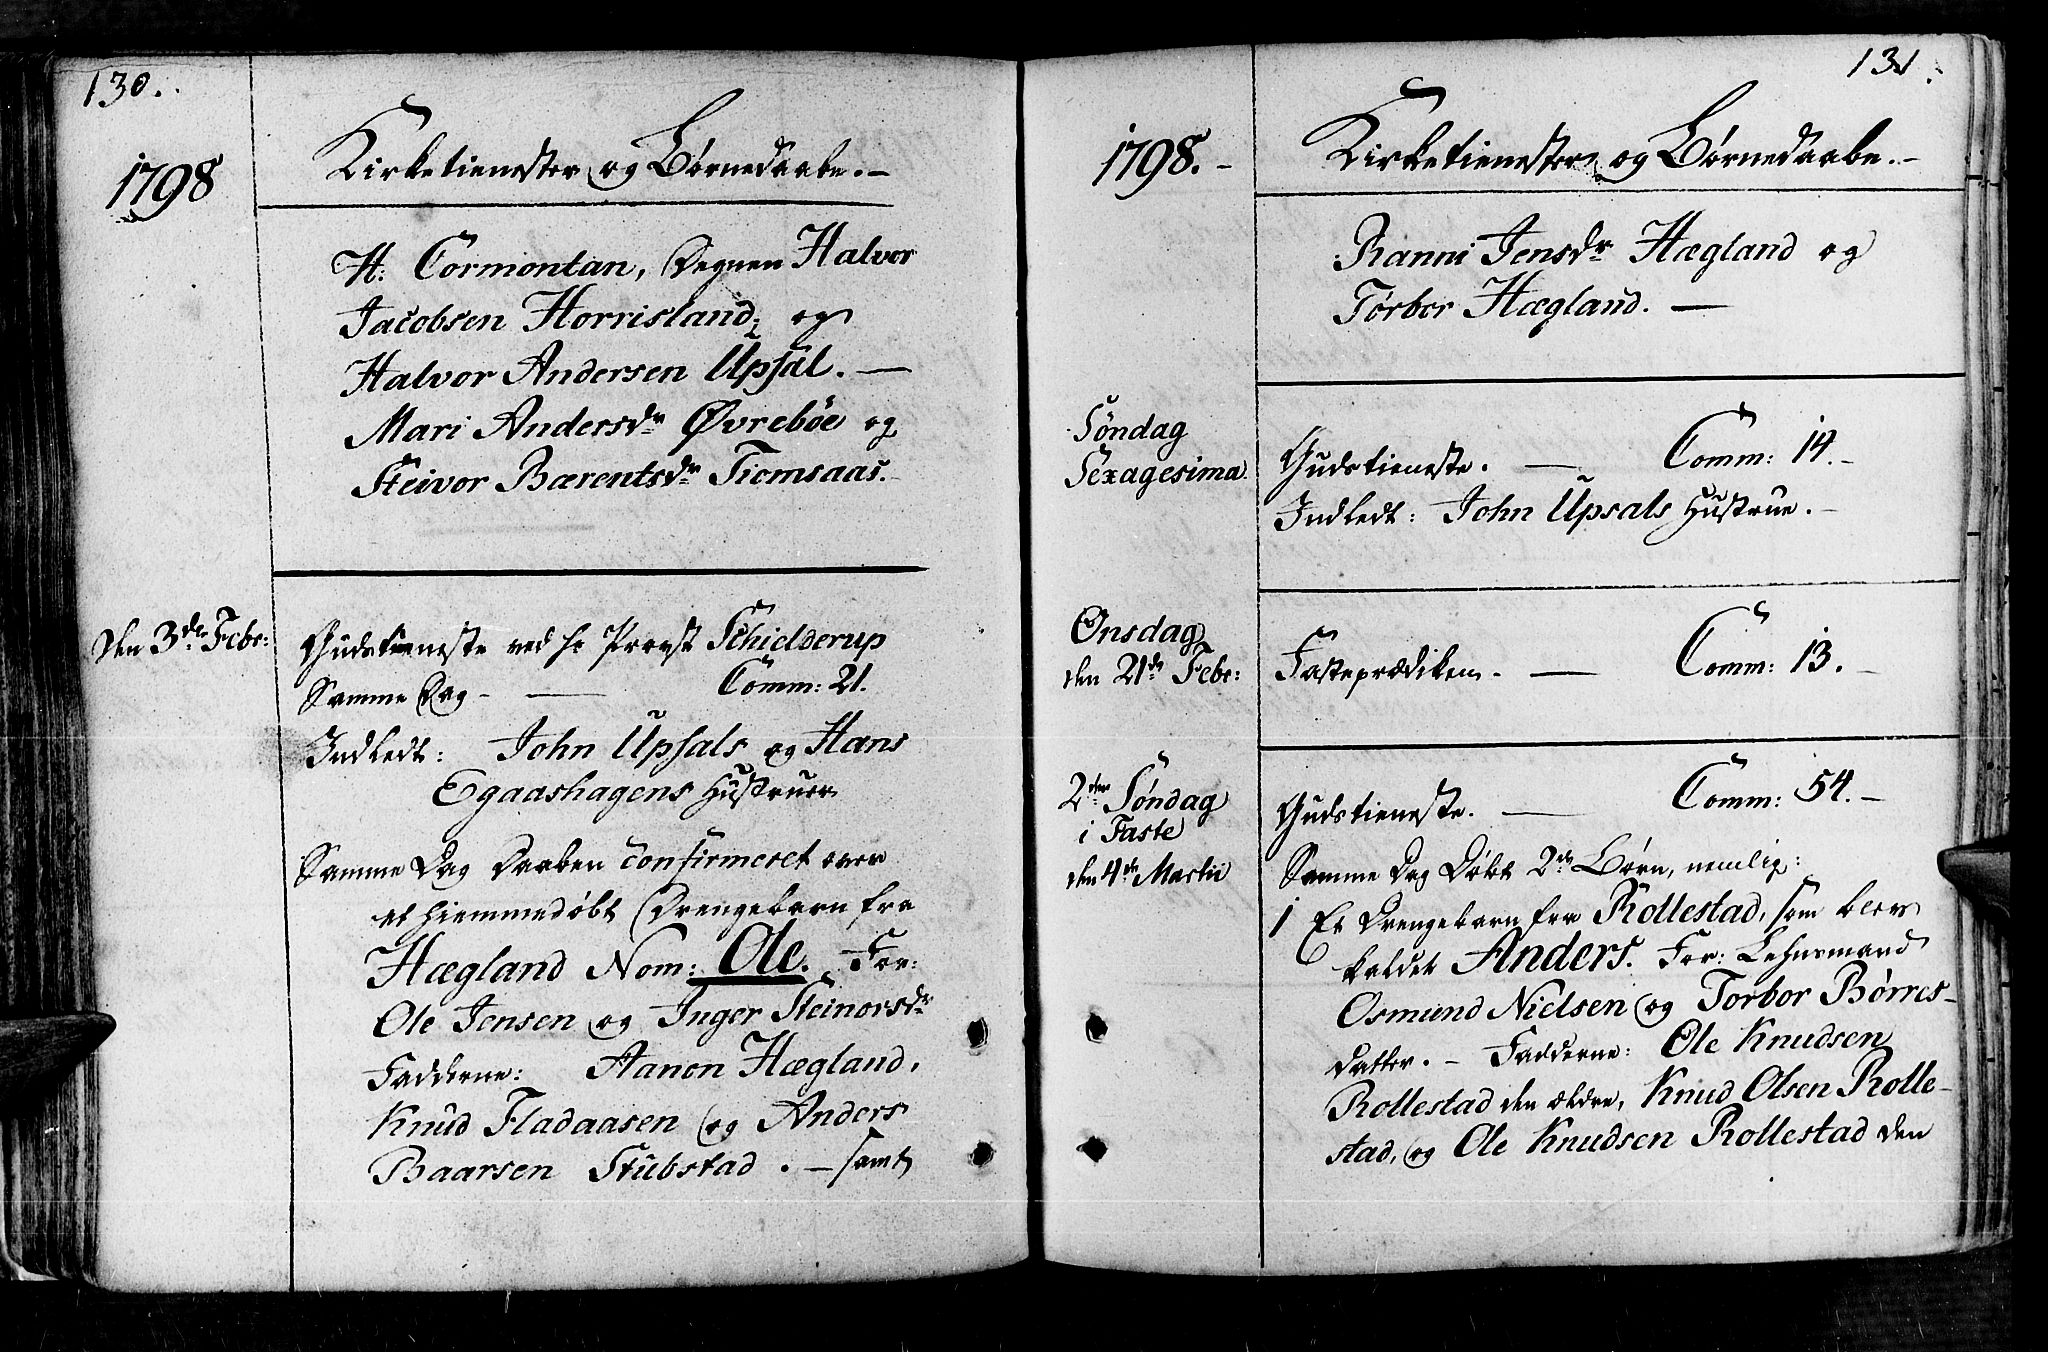 130.
1798
Kirketienester og Børnedaabe.-
H: Cormontan, Degnen Halvor
Jacobsen Horrisland, og
Halvor Andersen Upsal. —
Mari Andersdr Øvrebøe og
Steivor Bærentsdr Tiomsaas.
Den 3de Febr:
Gudstieneste ved Hr Provst Schielderup
Samme Dag - — Comm: 21.
Indledt: John Upsals og Hans
Egaashagens Hustruer
Samme Dag Daaben confirmeret over
et hiemmedøbt Drengebarn fra
Hægland Nom: Ole. For:
Ole Jensen og Inger Steinorsdr
Fadderne: Aanon Hægland,
Knud Fladaasen og Anders
Baarsen Stubstad. — samt
131.
1798.-
Kirketienester og Børnedaabe.-
Ranni Jensdr Hægland og
Tørbor Hægland. —
Søndag
Sexagesima
Gudstieneste. — Comm: 14.-
Indledt: John Upsals Hustrue.-
Onsdag
den 21de Febr:
Fasteprædiken. — Comm: 13.-
2den Søndag
i Faste
den 4de Martii
Gudstieneste. — Comm: 54.-
Samme Dag Døbt 2de Børn, nemlig:
1 Et Drengebarn fra Rollestad, som blev
kaldet Anders. For: Lehnsmand
Osmund Nielsen og Torbor Børres-
datter. - Fadderne: Ole Knudsen
Rollestad den ældre, Knud Olsen Rolle-
stad, og Ole Knudsen Rollestad den